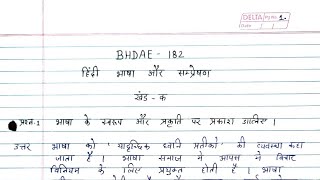 DELTA Pg No. 1.
Date
BHDAE - 182
हिंदी भाषा और सम्प्रेषण
खंड - क
प्रश्न.1 भाषा के स्वरूप और प्रकृति पर प्रकाश डालिए।
उत्तर भाषा को 'यादृच्छिक ध्वनि प्रतीकों' की व्यवस्था कहा
जाता है। भाषा समाज में आपस में विचार
विनिमय के लिए प्रयुक्त होती है। भाषा